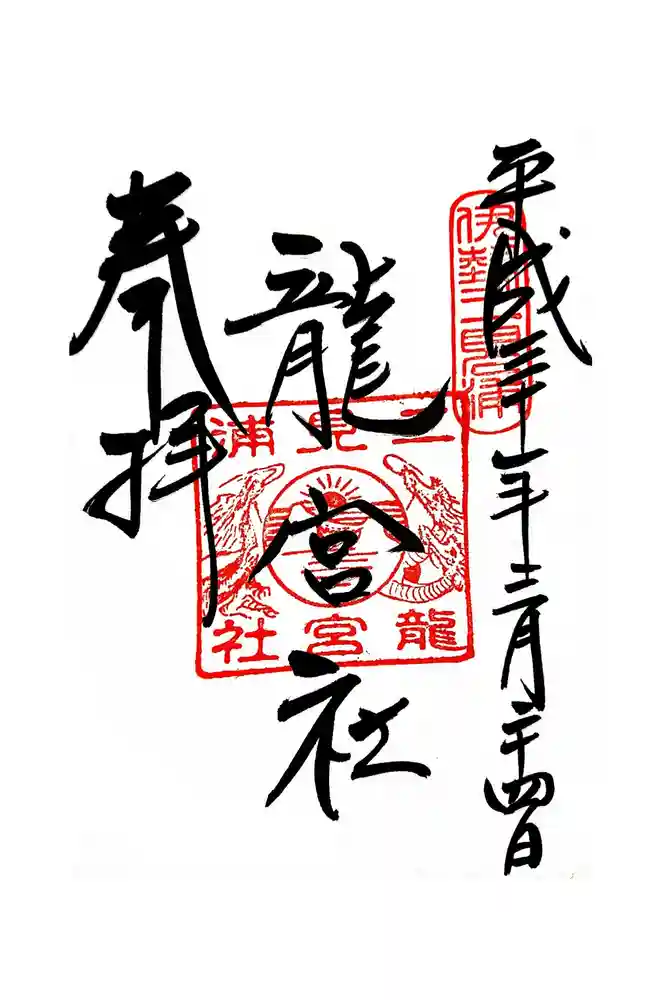 平成三十年十二月二十四日
伊勢二見浦
龍宮社
二見浦
龍宮社
奉拝